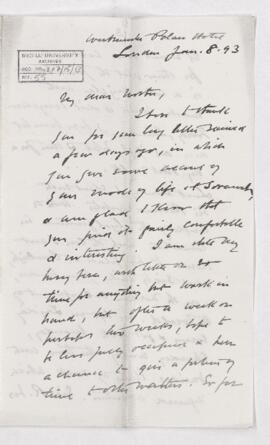 Westminster Palace Hotel
London Jan. 8. 93
McGILL UNIVERSITY
ARCHIVES
ACC. NO.
My dear Mother,
I have to thank
you for your long letter received
a few days ago, in which
you give some account of
your mode of life at
& am glad to know that
you find it fairly comfortable
& interesting. I am still very
busy here, with little or no
time for anything but work in
hand, but after a week or
perhaps two weeks, hope to
be less fully occupied & have
a chance to give a portion of
time to other matters. So far